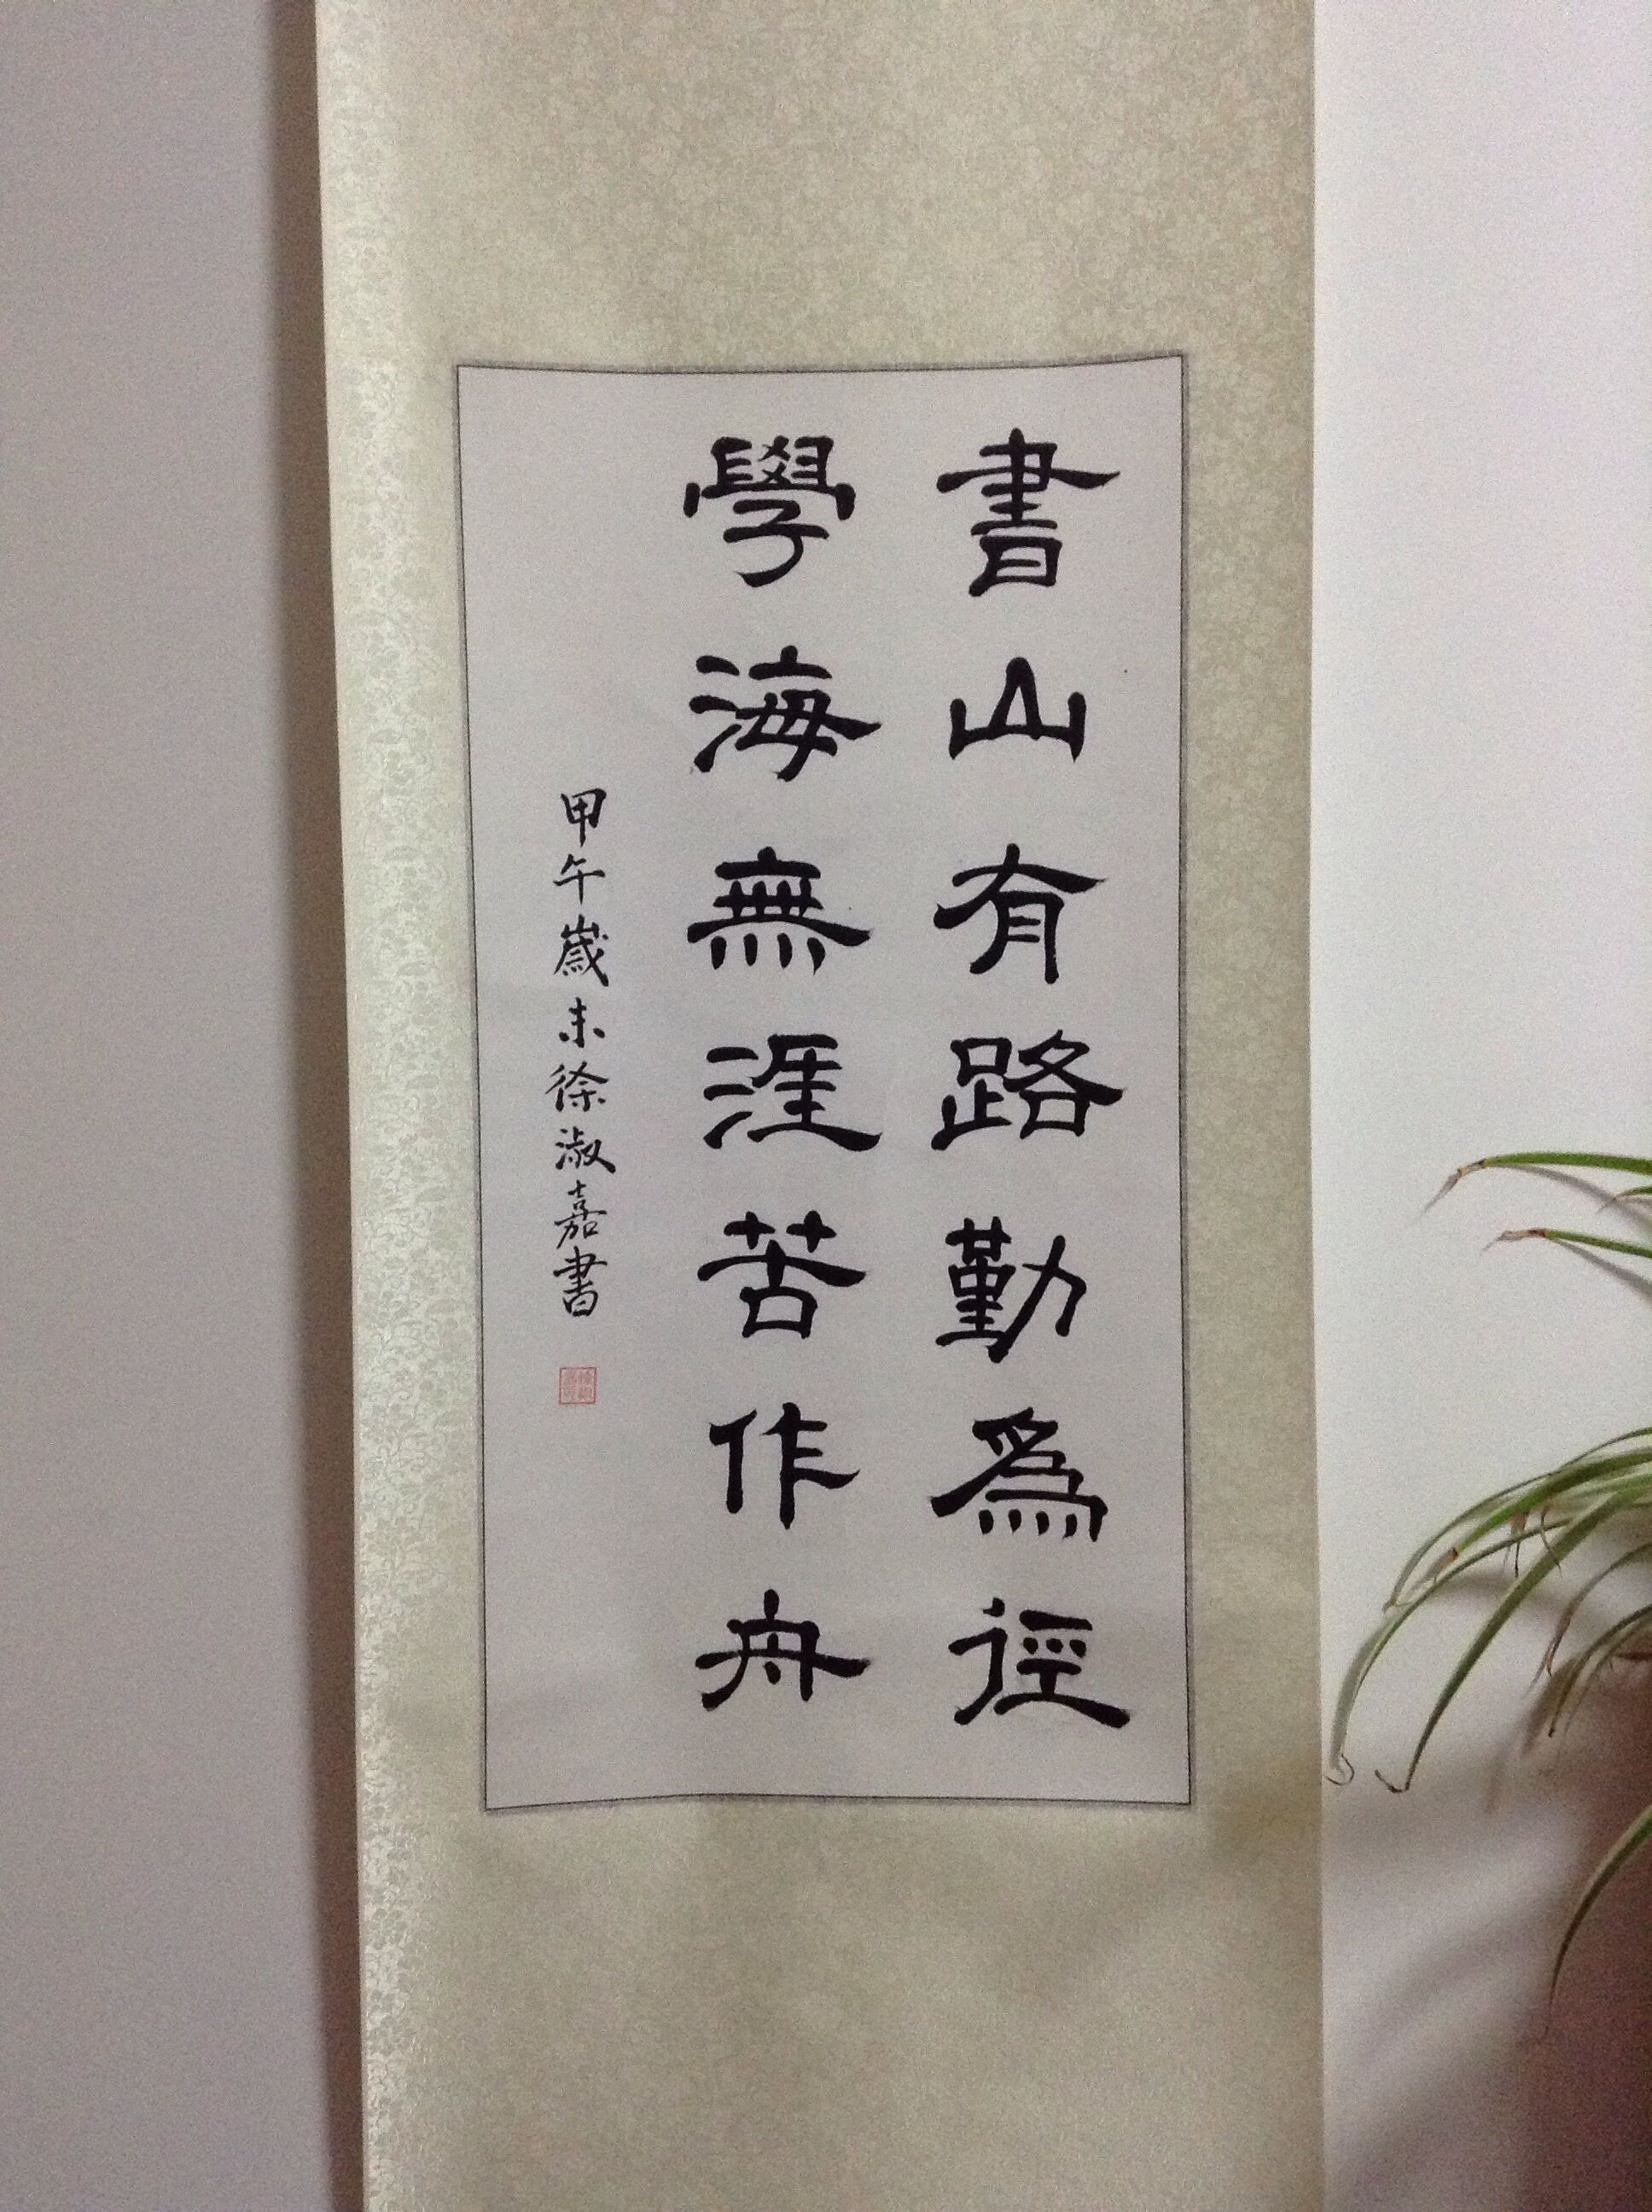 書山有路勤為徑
學海無涯苦作舟
甲午歲末徐淑嘉書